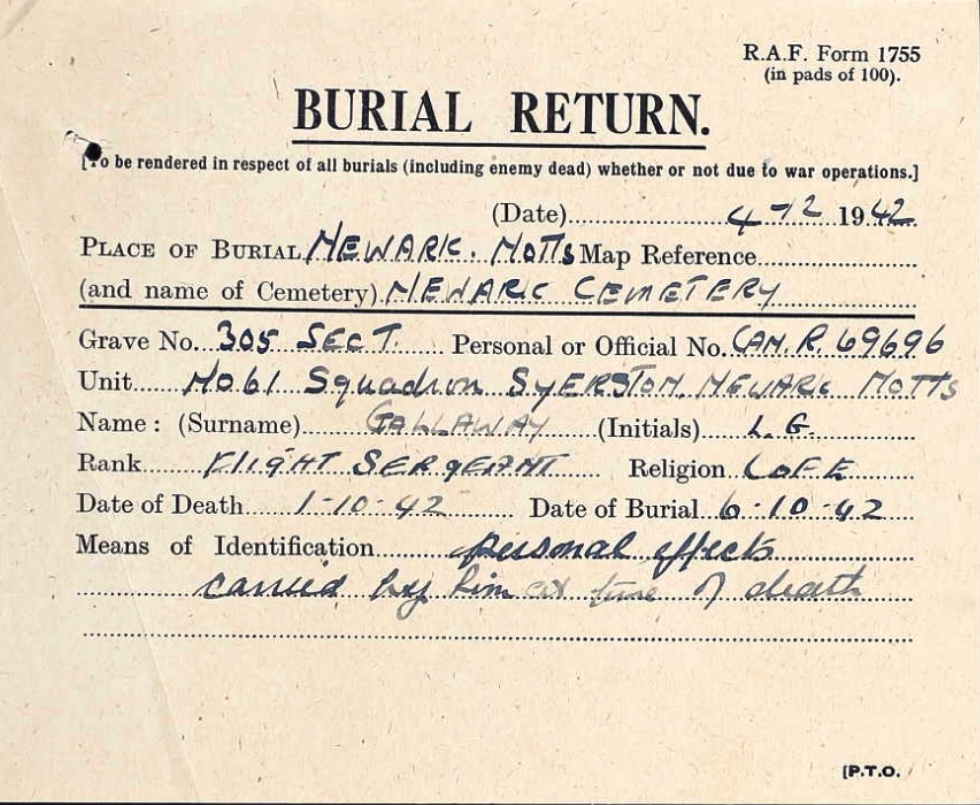 R.A.F. Form 1755
(in pads of 100).
BURIAL RETURN.
[To be rendered in respect of all burials (including enemy dead) whether or not due to war operations.]
(Date) 4-12 1942
PLACE OF BURIAL NEWARK. NOTTS Map Reference
(and name of Cemetery) NEWARK CEMETERY
Grave No. 305 SECT. Personal or Official No. CAN. R. 69696
Unit No 61 Squadron SYERSTON. NEWARK NOTTS
Name : (Surname) GALLAWAY (Initials) L. G.
Rank FLIGHT SERGEANT Religion C of E
Date of Death 1-10-42 Date of Burial 6-10-42
Means of Identification personal effects
carried by him at time of death
[P.T.O.